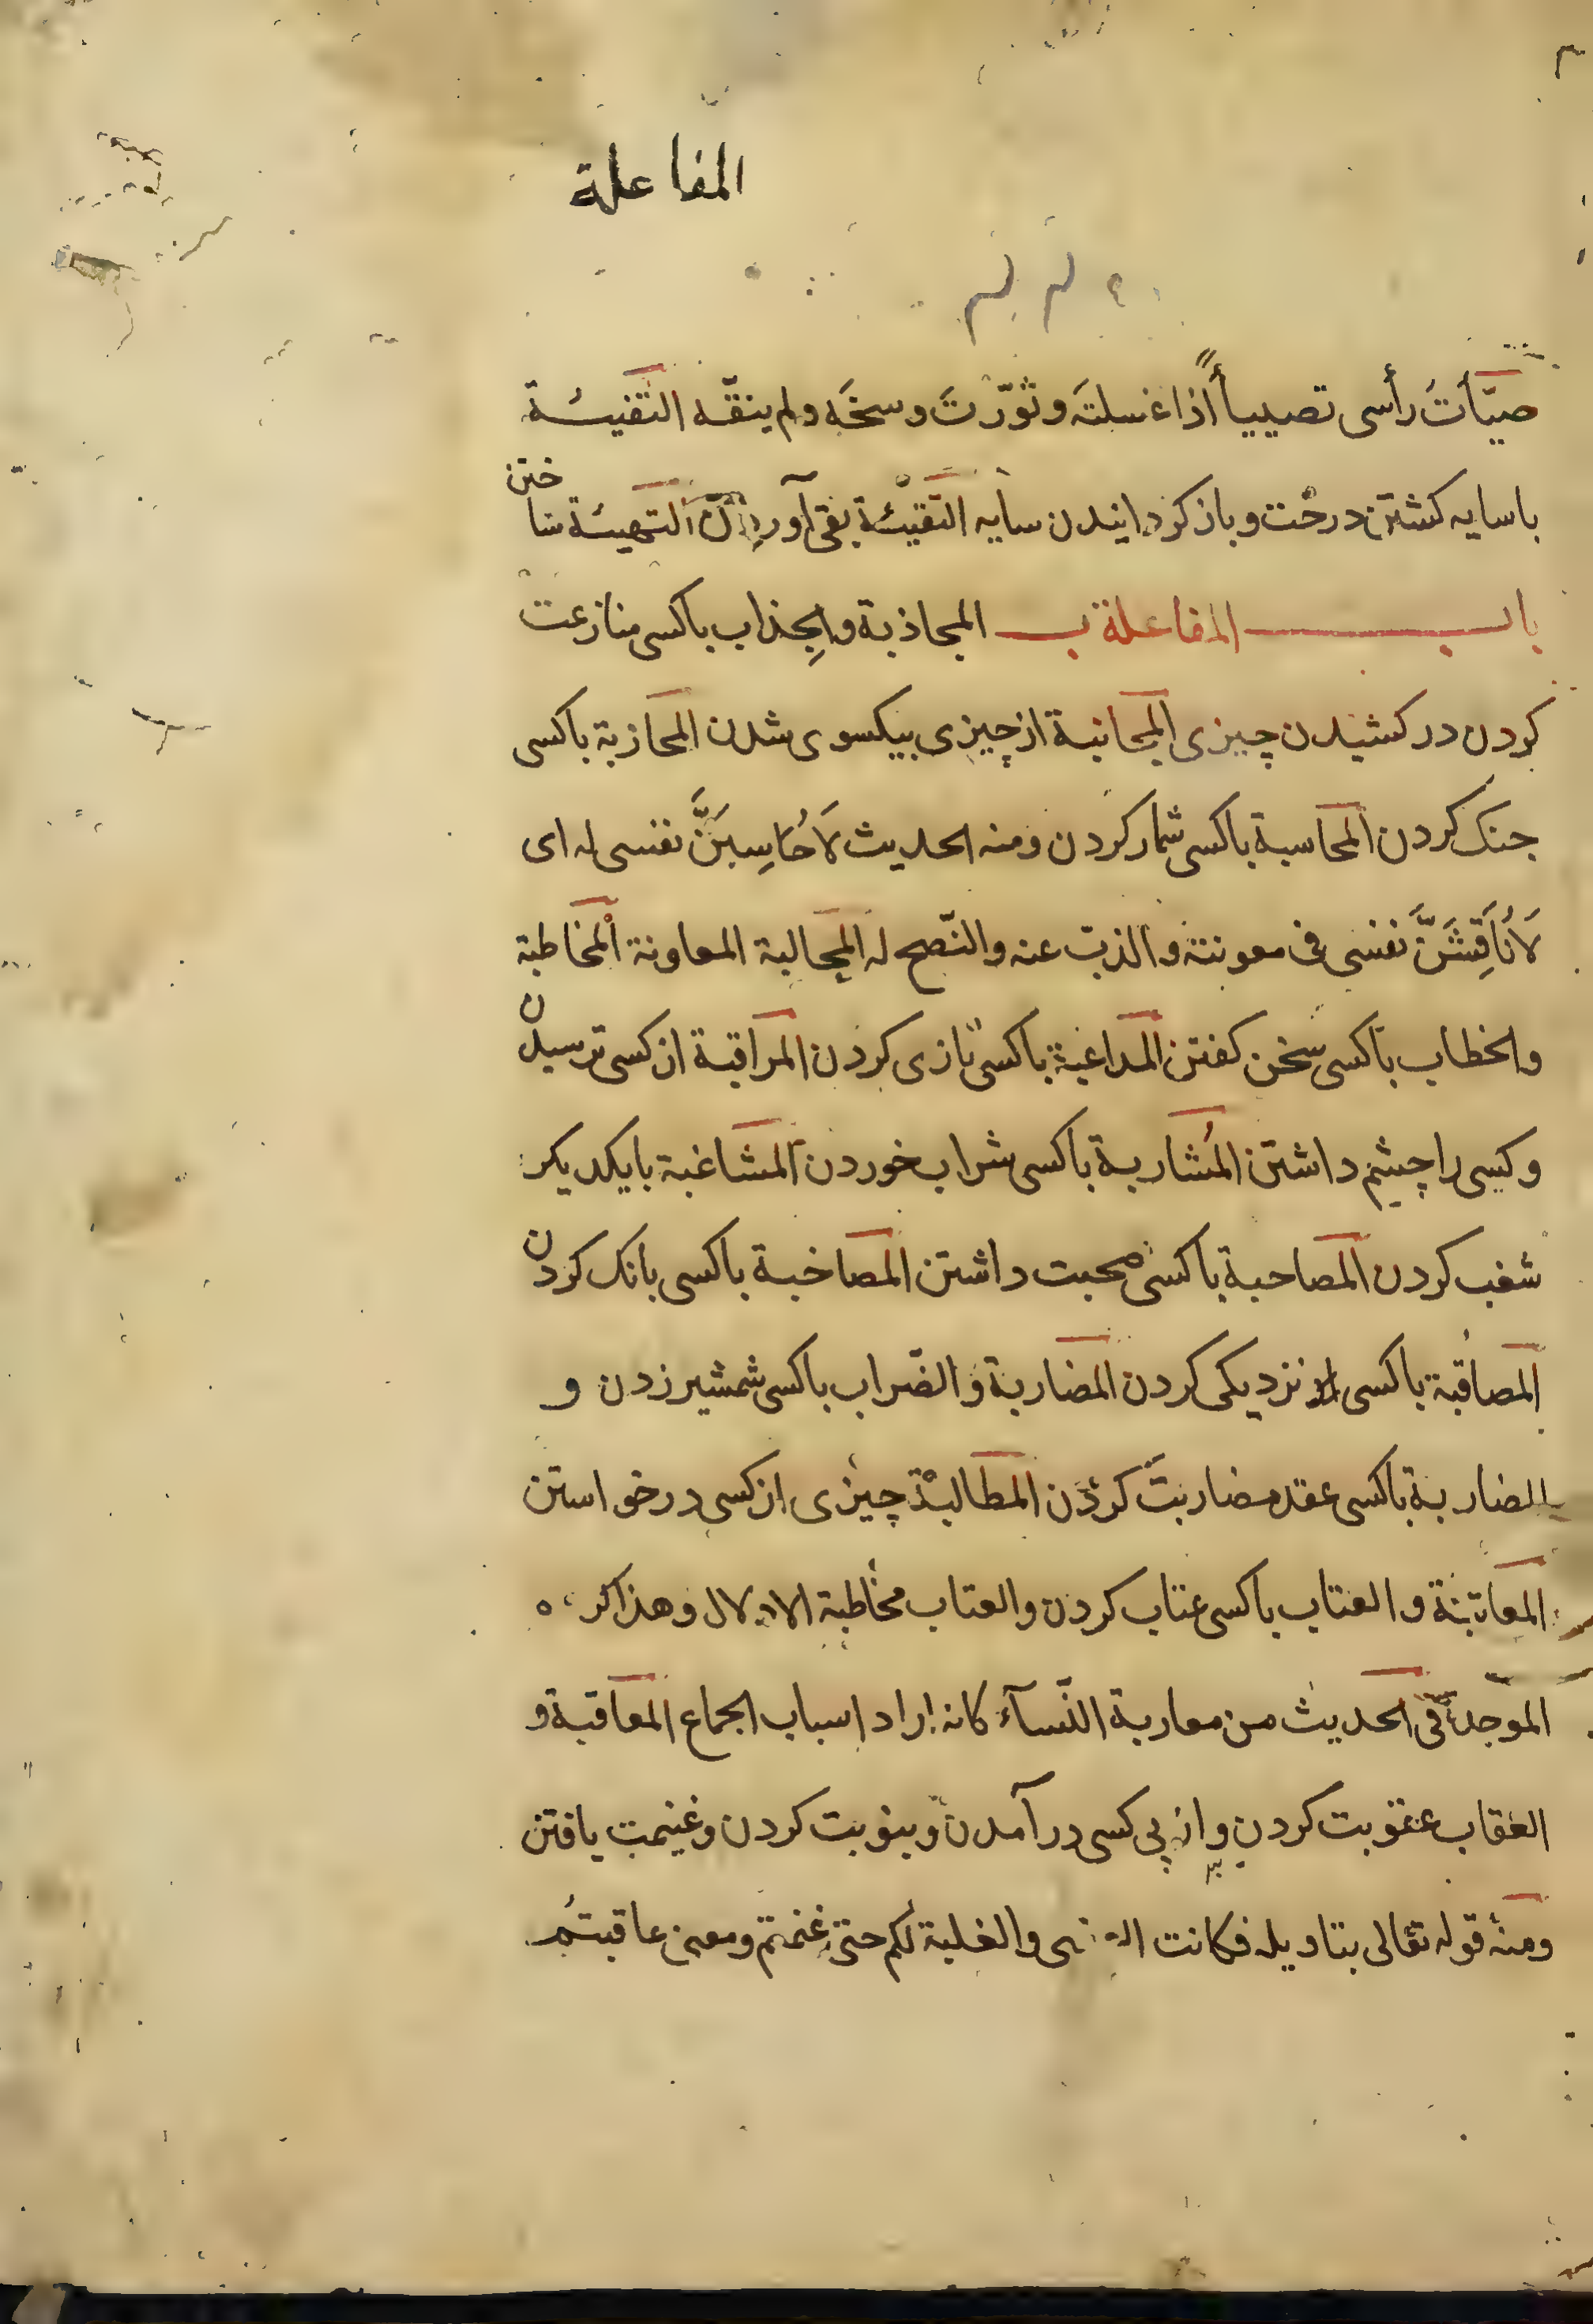 المفاعلة
صيّأتَ رأسى تصيياً اذا غسلتَه وثوّرتَ وسخَه ولم ينقّه التفيئة
باسايه كشتن درخت وباز كردانيدن سايه التقيّئة بقى آوردن التهيئة ساختن
باب المفاعلة ب المجاذبة والجِذاب باكسى منازعت
كردن در كشيدن چيزى المجانبة از چيزى بيكسوى شدن المحازبة باكسى
جنك كردن المحاسبة باكسى شمار كردن ومنه الحديث لَاُحَاسِبَنَّ نفسى له اى
لَاُنَاقِشَنَّ نفسى فى معونته والذبّ عنه والنّصح له المجالبة المعاونة المخاطبة
والخطاب باكسى سخن كفتن المداعبة باكسى بازى كردن المراقبة از كسى ترسيدن
وكسى را چشم داشتن المُشاربة باكسى شراب خوردن المشاغبة بايكديكر
شغب كردن المصاحبة باكسى صحبت داشتن المصاخبة باكسى بانك كردن
المصاقبة باكسى نزديكى كردن المضاربة والضّراب باكسى شمشير زدن و
المضاربة باكسى عقد مضاربت كردن المطالبة چيزى از كسى درخواستن
المعاتبة والعتاب باكسى عتاب كردن والعتاب مخاطبة الادلال وهذاكره
الموجدة فى الحديث من معاربة النّسآء كانه اراد اسباب الجماع المعاقبة و
العقاب عقوبت كردن واز پى كسى درآمدن وبنوبت كردن وغنيمت يافتن
ومنه قوله تعالى بتاويله فكانت والغلبة لكم حتى غنمتم ومعنى عاقبتُم